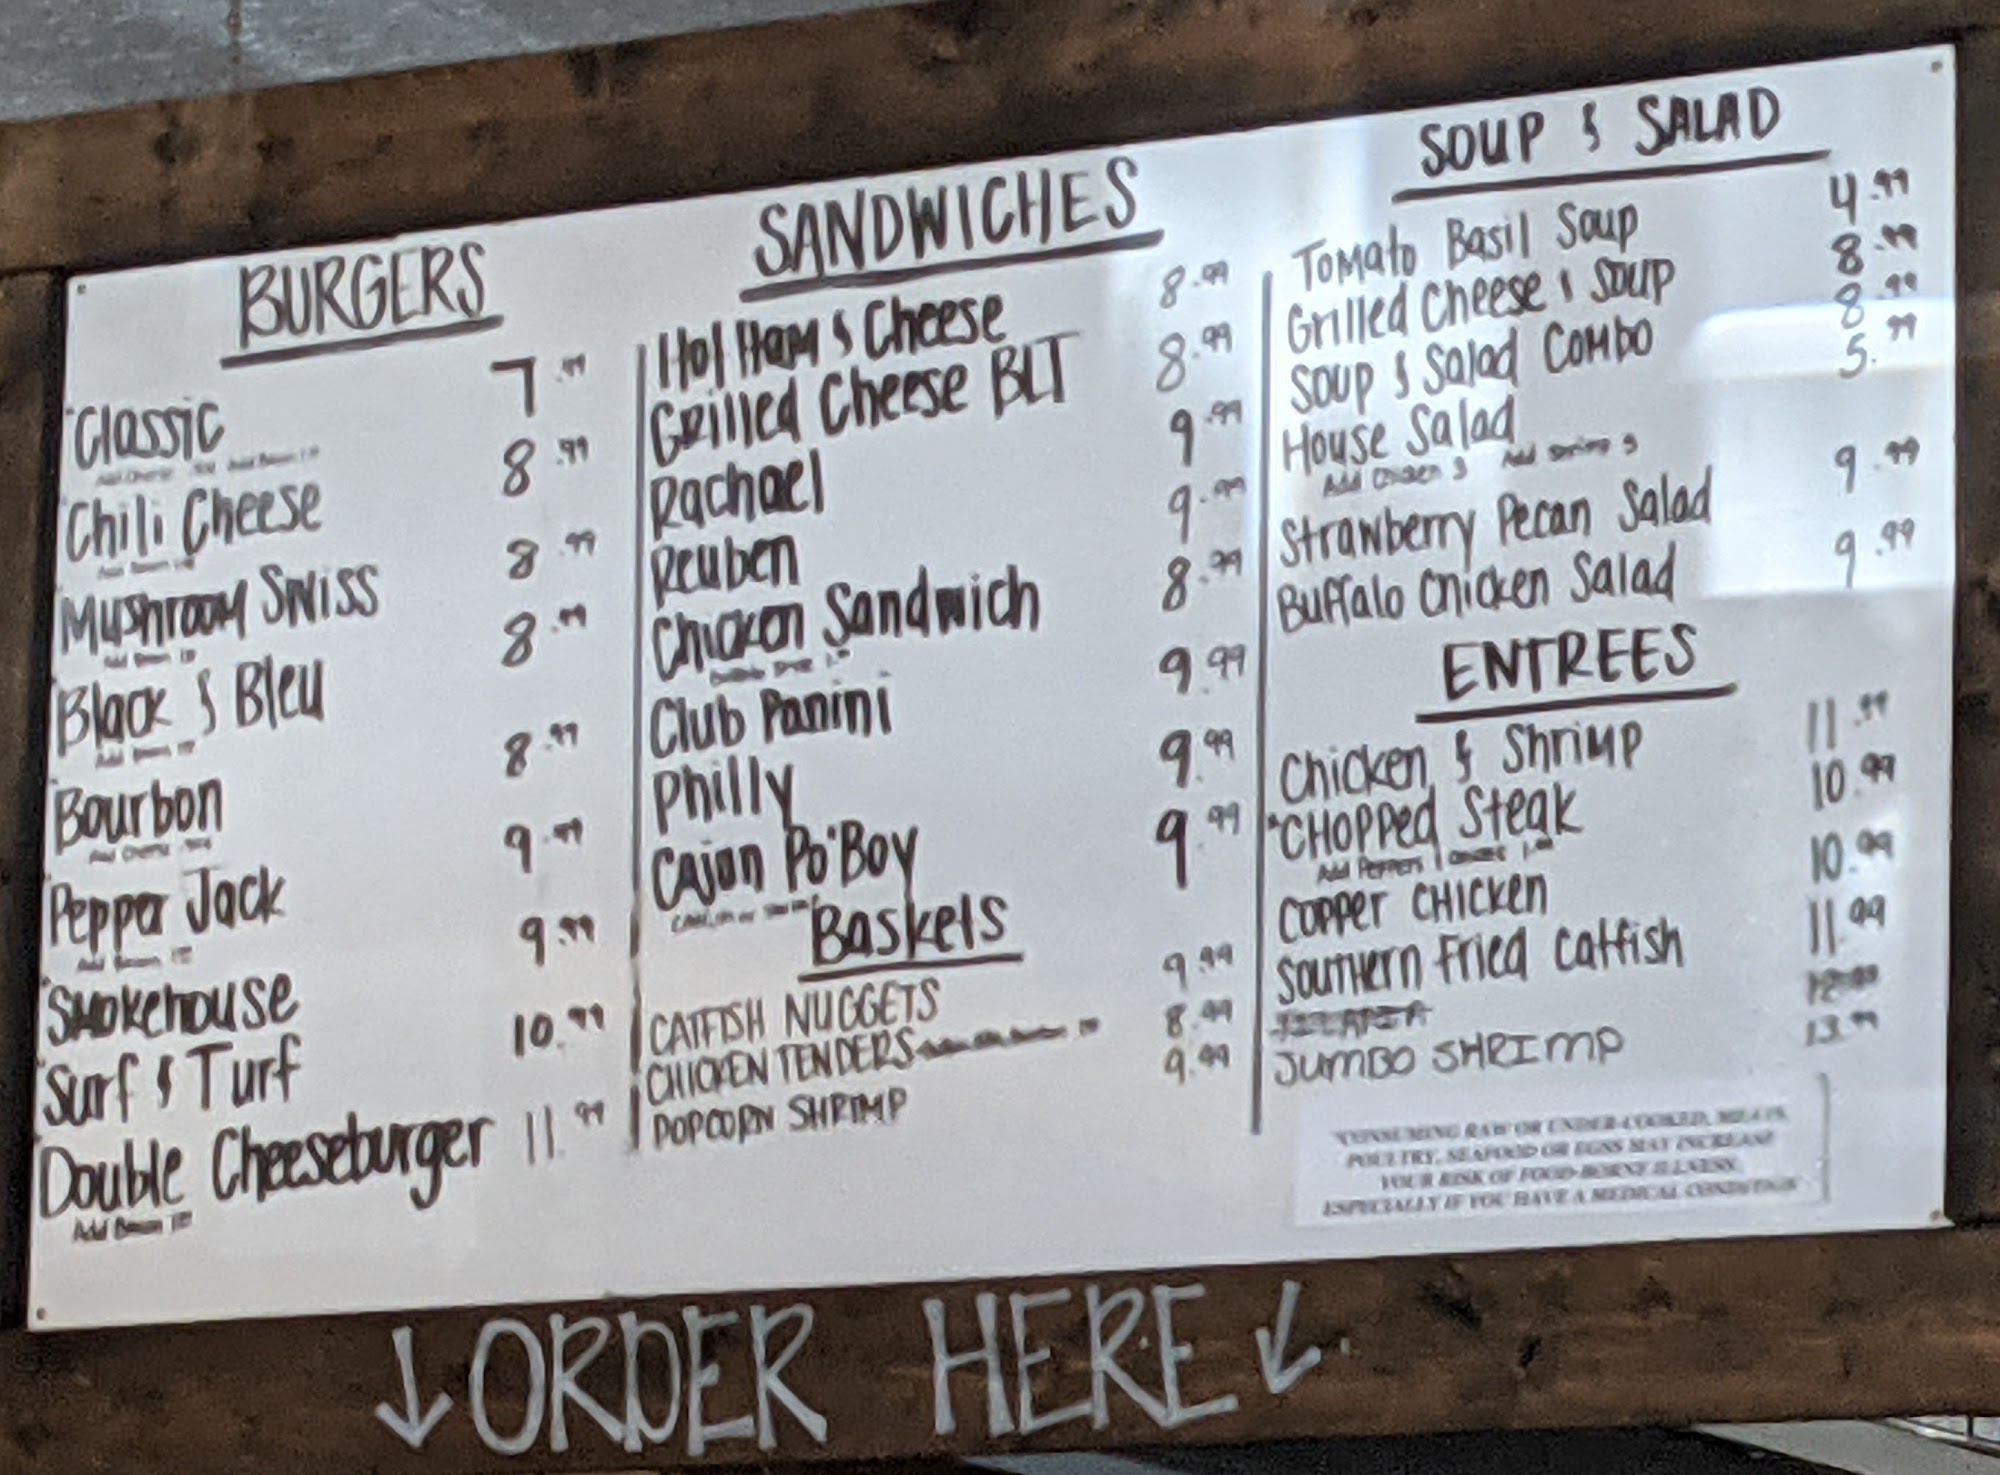 BURGERS
*Classic 7.99
Add Cheese .50¢ Add Bacon 1.00
Chili Cheese 8.99
Add Bacon
*Mushroom Swiss 8.99
Add Bacon
*Black & Bleu 8.99
Add Bacon
*Bourbon 8.99
Add Cheese
*Pepper Jack 9.99
Add Bacon
*Smokehouse 9.99
*Surf & Turf 10.99
*Double Cheeseburger 11.99
Add Bacon
SANDWICHES
Hot Ham & Cheese 8.99
Grilled Cheese BLT 8.99
Rachael 9.99
Reuben 9.99
Chicken Sandwich 8.99
Club Panini 9.99
Philly 9.99
Cajun Po'Boy 9.99
Baskets
CATFISH NUGGETS 9.99
CHICKEN TENDERS 8.99
POPCORN SHRIMP 9.99
SOUP & SALAD
Tomato Basil Soup 4.99
Grilled Cheese & Soup 8.99
Soup & Salad Combo 8.99
House Salad 5.99
Add Chicken 3 Add Shrimp 3
Strawberry Pecan Salad 9.99
Buffalo Chicken Salad 9.99
ENTREES
Chicken & Shrimp 11.99
*CHOPPed Steak 10.99
Add Peppers
COPPER CHICKEN 10.99
SOUTHERN Fried Catfish 11.99
JUMBO SHRIMP 13.99
*CONSUMING RAW OR UNDER-COOKED, MEATS,
POULTRY, SEAFOOD OR EGGS MAY INCREASE
YOUR RISK OF FOOD-BORNE ILLNESS,
ESPECIALLY IF YOU HAVE A MEDICAL CONDITION
↓ORDER HERE↓